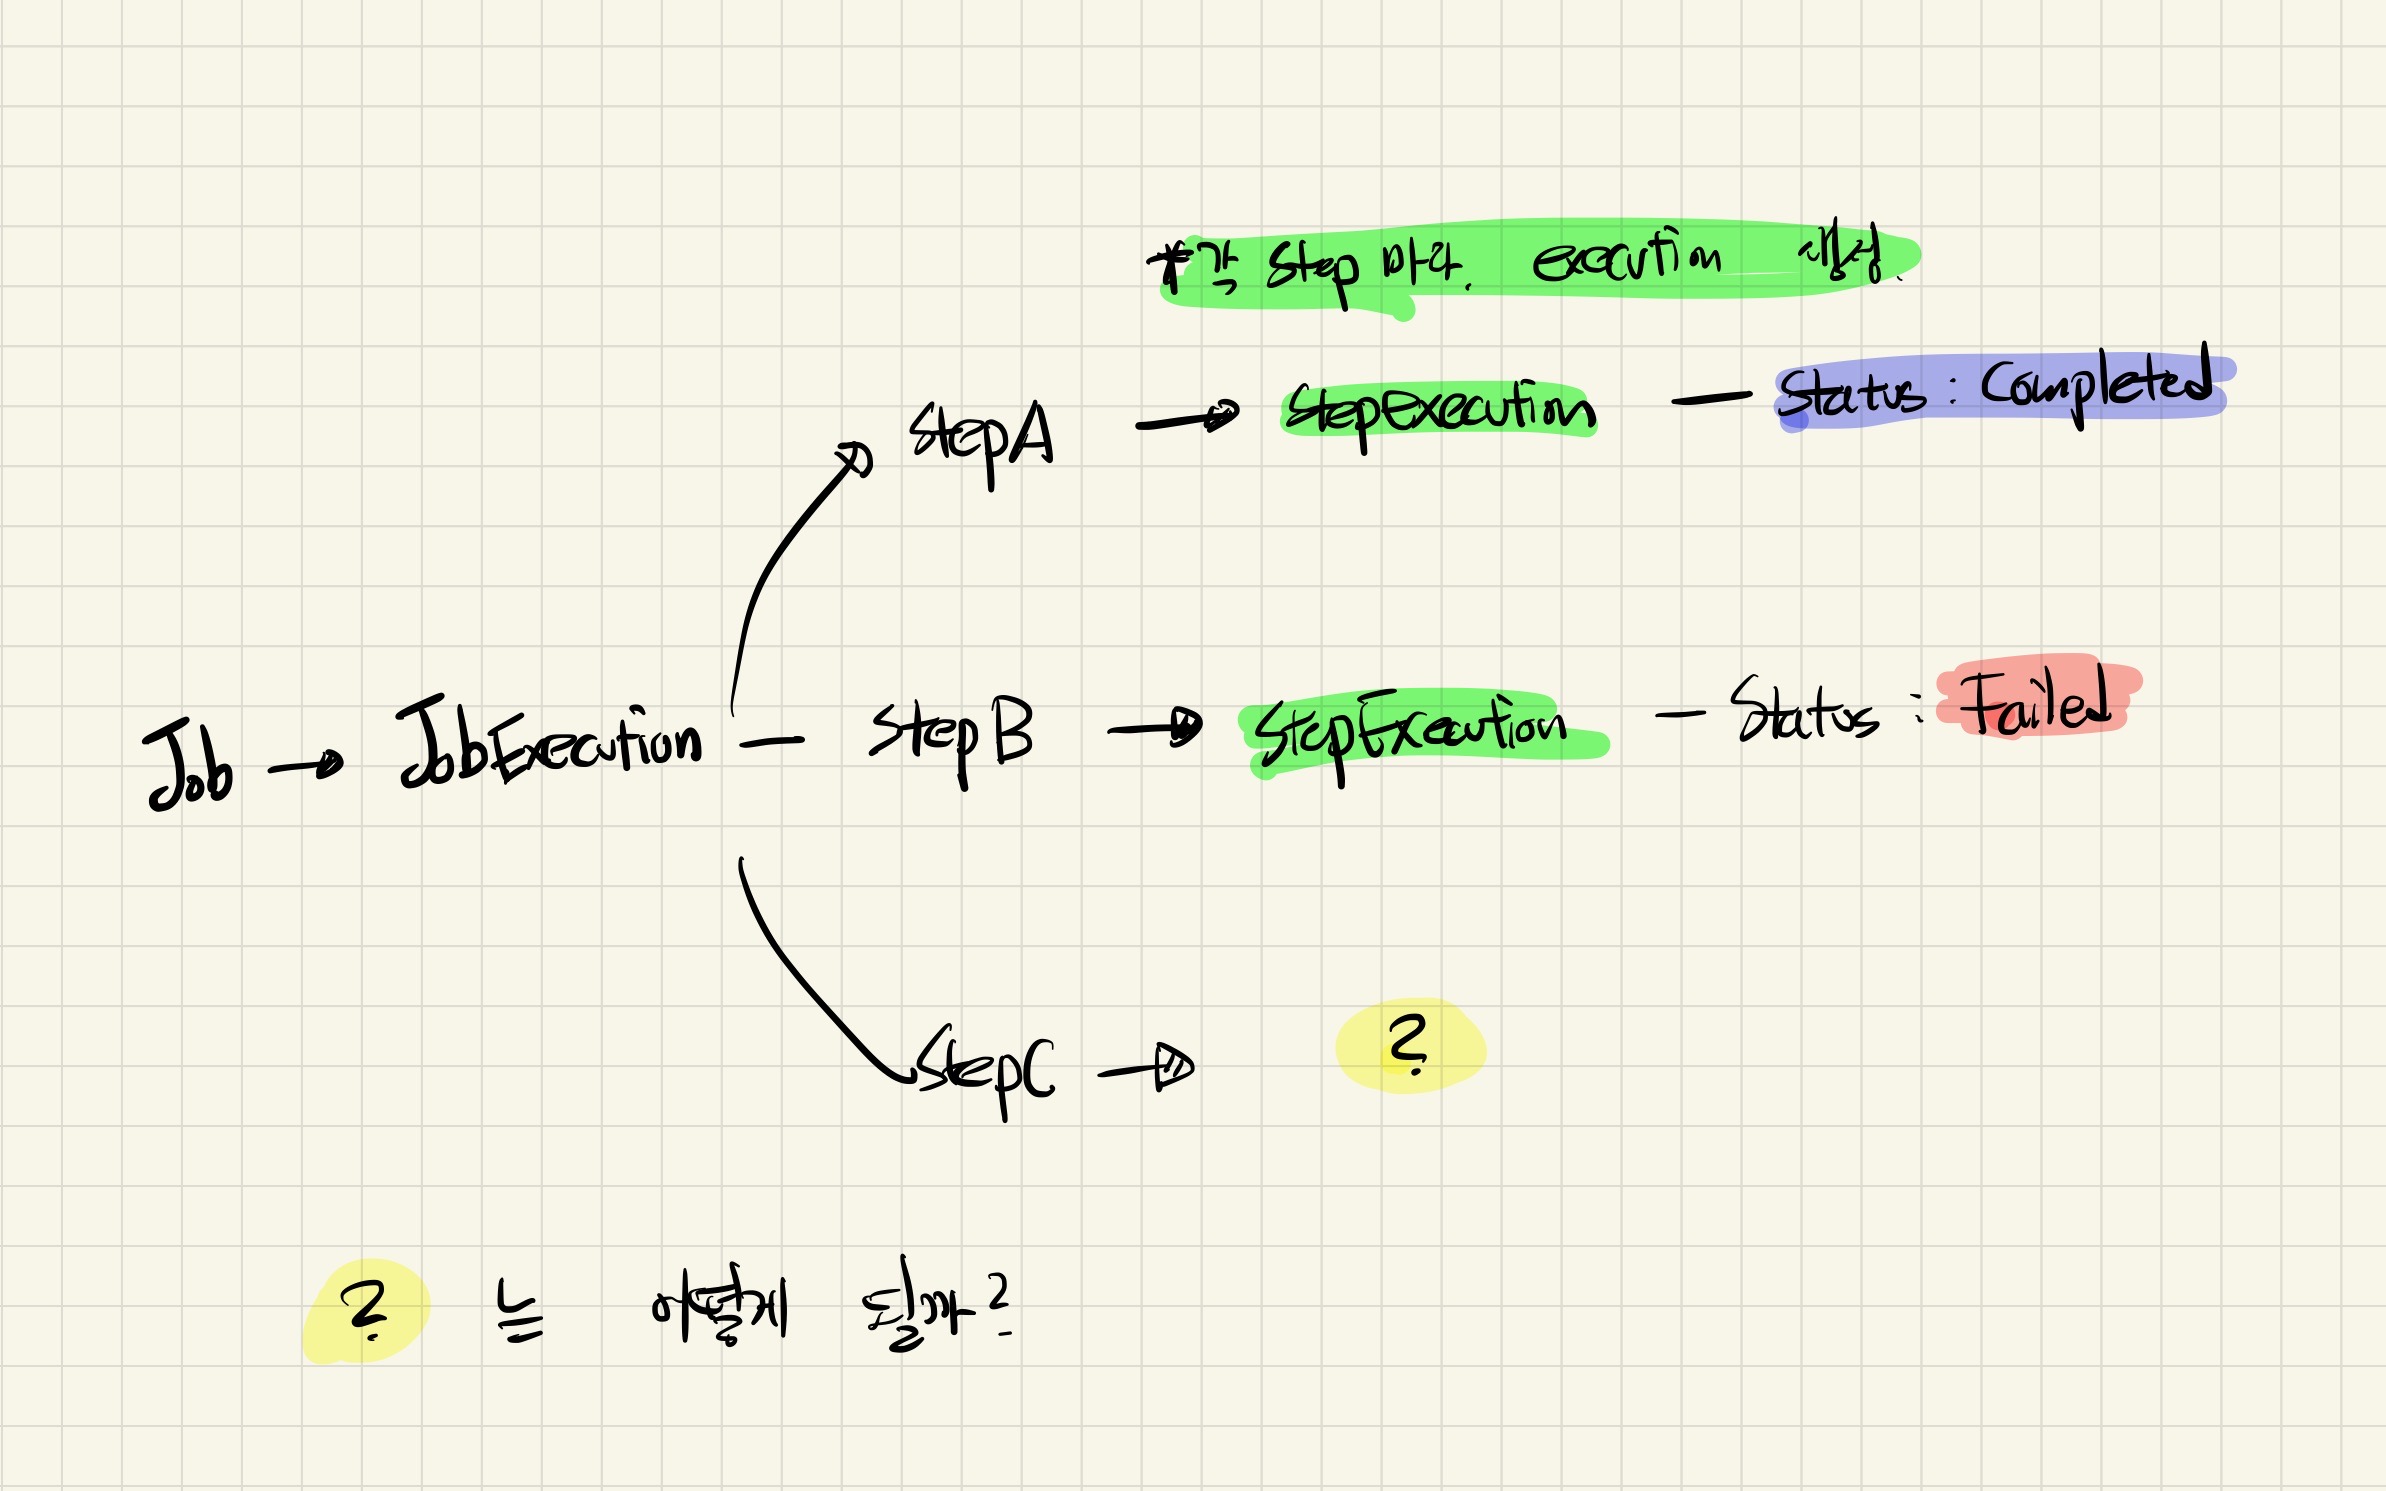 * 각 Step 마다 execution 생성.
StepA → StepExecution — Status : Completed
Job → JobExecution — StepB → StepExecution — Status : Failed
StepC → ?
? 는 어떻게 될까?